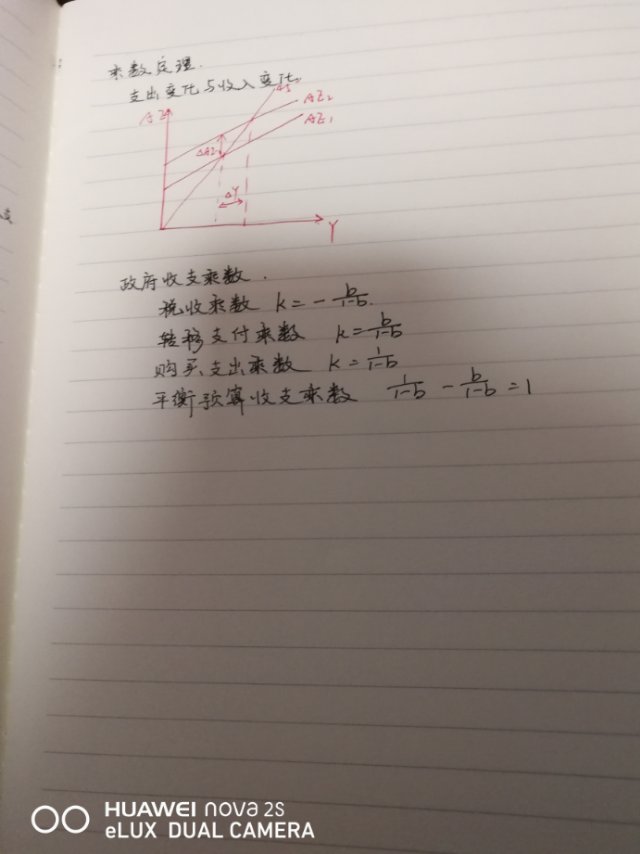 乘数定理.
支出变化与收入变化.
AE
AS
AE₂
AE₁
ΔAE
ΔY
Y
政府收支乘数.
税收乘数 k = - b/1-b.
转移支付乘数 k = b/1-b
购买支出乘数 k = 1/1-b
平衡预算收支乘数 1/1-b - b/1-b = 1
HUAWEI nova 2S
eLUX DUAL CAMERA